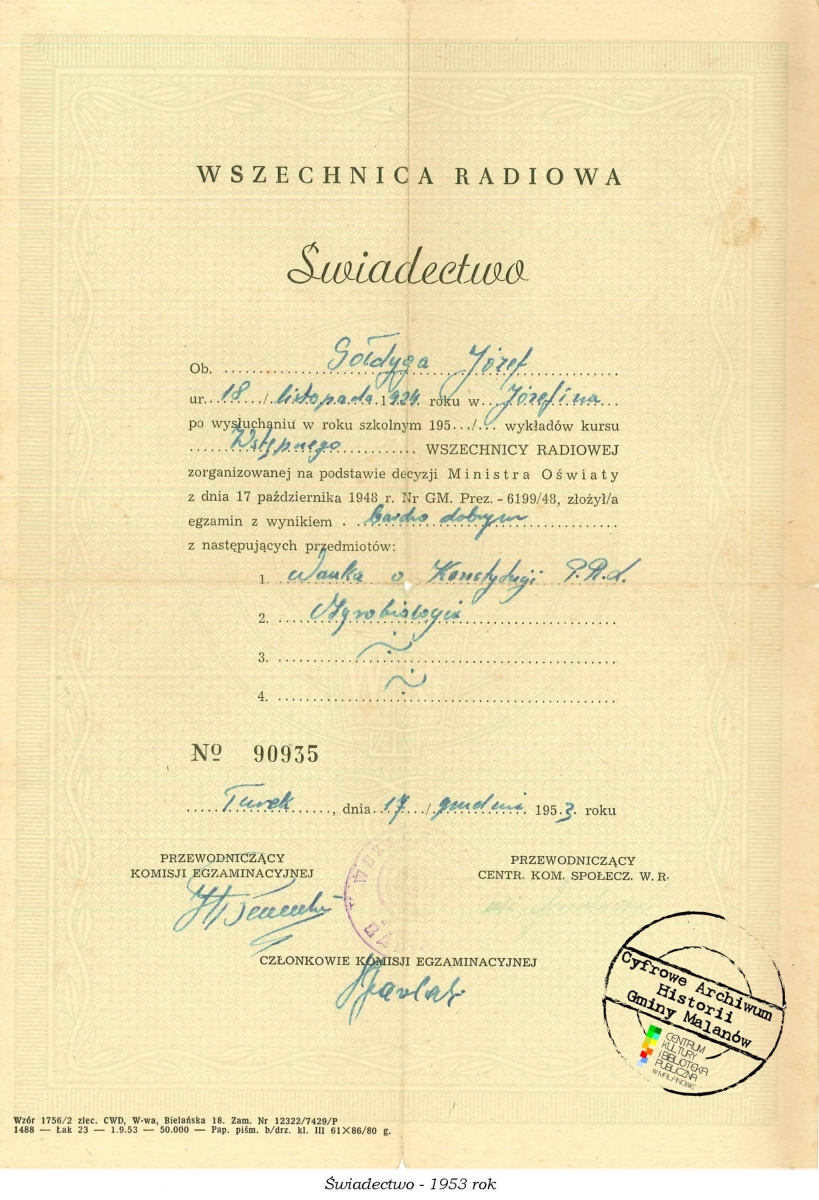 WSZECHNICA RADIOWA
Świadectwo
Ob. Gołdyga Józef
ur. 18 / listopada 1924 roku w Józefina
po wysłuchaniu w roku szkolnym 195.../... wykładów kursu
Wstępnego WSZECHNICY RADIOWEJ
zorganizowanej na podstawie decyzji Ministra Oświaty
z dnia 17 października 1948 r. Nr GM. Prez. - 6199/48, złożył/a
egzamin z wynikiem bardzo dobrym
z następujących przedmiotów:
1. Nauka o Konstytucji P.R.L.
2. Agrobiologia
3.
4.
Nº 90935
Turek, dnia 17 / grudnia 1953 roku
PRZEWODNICZĄCY
KOMISJI EGZAMINACYJNEJ
PRZEWODNICZĄCY
CENTR. KOM. SPOŁECZ. W. R.
CZŁONKOWIE KOMISJI EGZAMINACYJNEJ
Cyfrowe Archiwum
Historii
Gminy Malanów
CENTRUM
KULTURY
I BIBLIOTEKA
PUBLICZNA
W MALANOWIE
Wzór 1756/2 zlec. CWD, W-wa, Bielańska 18. Zam. Nr 12322/7429/P
1488 — Łak 23 — 1.9.53 — 50.000 — Pap. piśm. b/drz. kl. III 61×86/80 g.
Świadectwo - 1953 rok